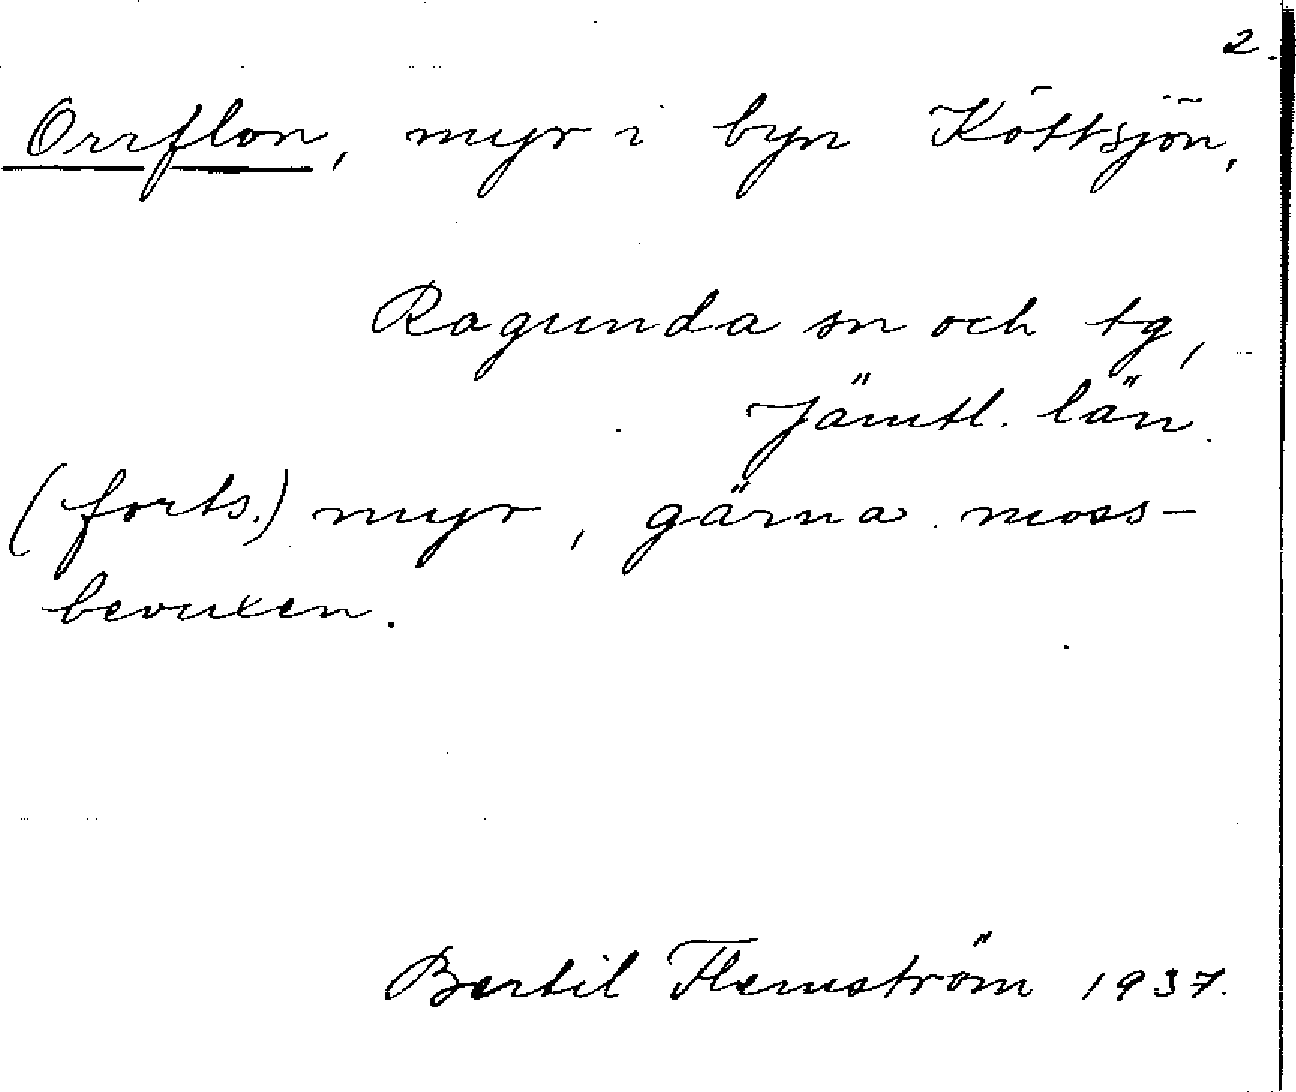 2.
Orrflon, myr i byn Köttsjön,
Ragunda sn och tg,
Jämtl. län.
(forts.) myr, gärna moss-
bevuxen.
Bertil Flemström 1937.